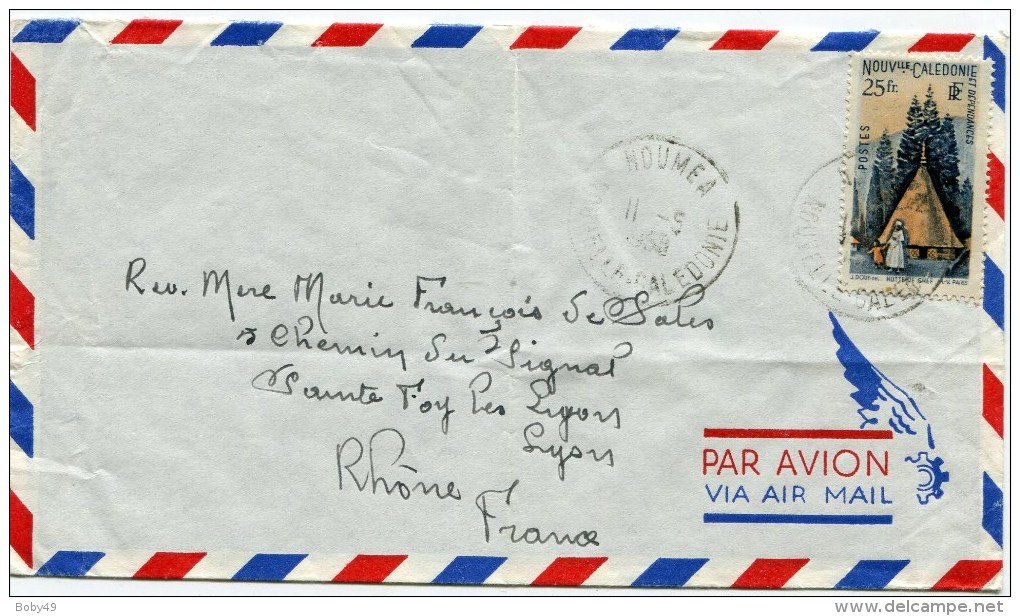 NOUVLLE CALEDONIE
ET DÉPENDANCES
25fr.
RF
POSTES
HUTTE DE CHEF
PARIS
NOUMEA
11 -5
CALEDONIE
Rev. Mere Marie François de Sales
Chemin du Signal
Sainte Foy les Lyons
Lyons
Rhône
France
PAR AVION
VIA AIR MAIL
Boby49
www.delcampe.net